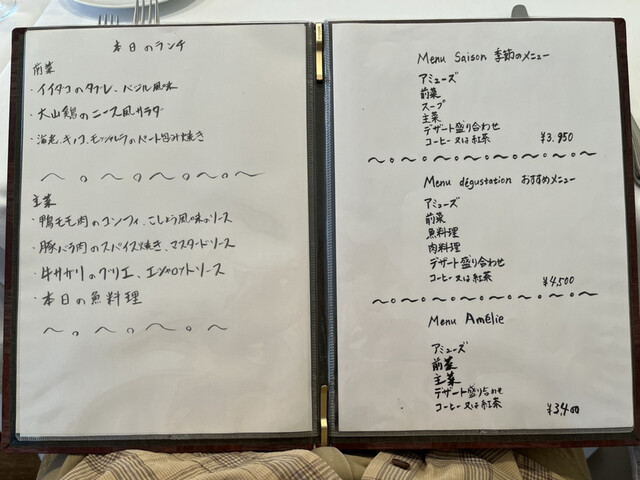 本日のランチ
前菜
・イイダコのタブレ、バジル風味
・大山鶏のニース風サラダ
・海老、キノコ、モッツァレラのパート包み焼き
主菜
・鴨モモ肉のコンフィ、こしょう風味のソース
・豚バラ肉のスパイス焼き、マスタードソース
・牛サガリのグリエ、エシャロットソース
・本日の魚料理
Menu Saison 季節のメニュー
アミューズ
前菜
スープ
主菜
デザート盛り合わせ
コーヒー又は紅茶 ¥3,950
Menu dégustation おすすめメニュー
アミューズ
前菜
魚料理
肉料理
デザート盛り合わせ
コーヒー又は紅茶 ¥4,500
Menu Amélie
アミューズ
前菜
主菜
デザート盛り合わせ
コーヒー又は紅茶 ¥3,400